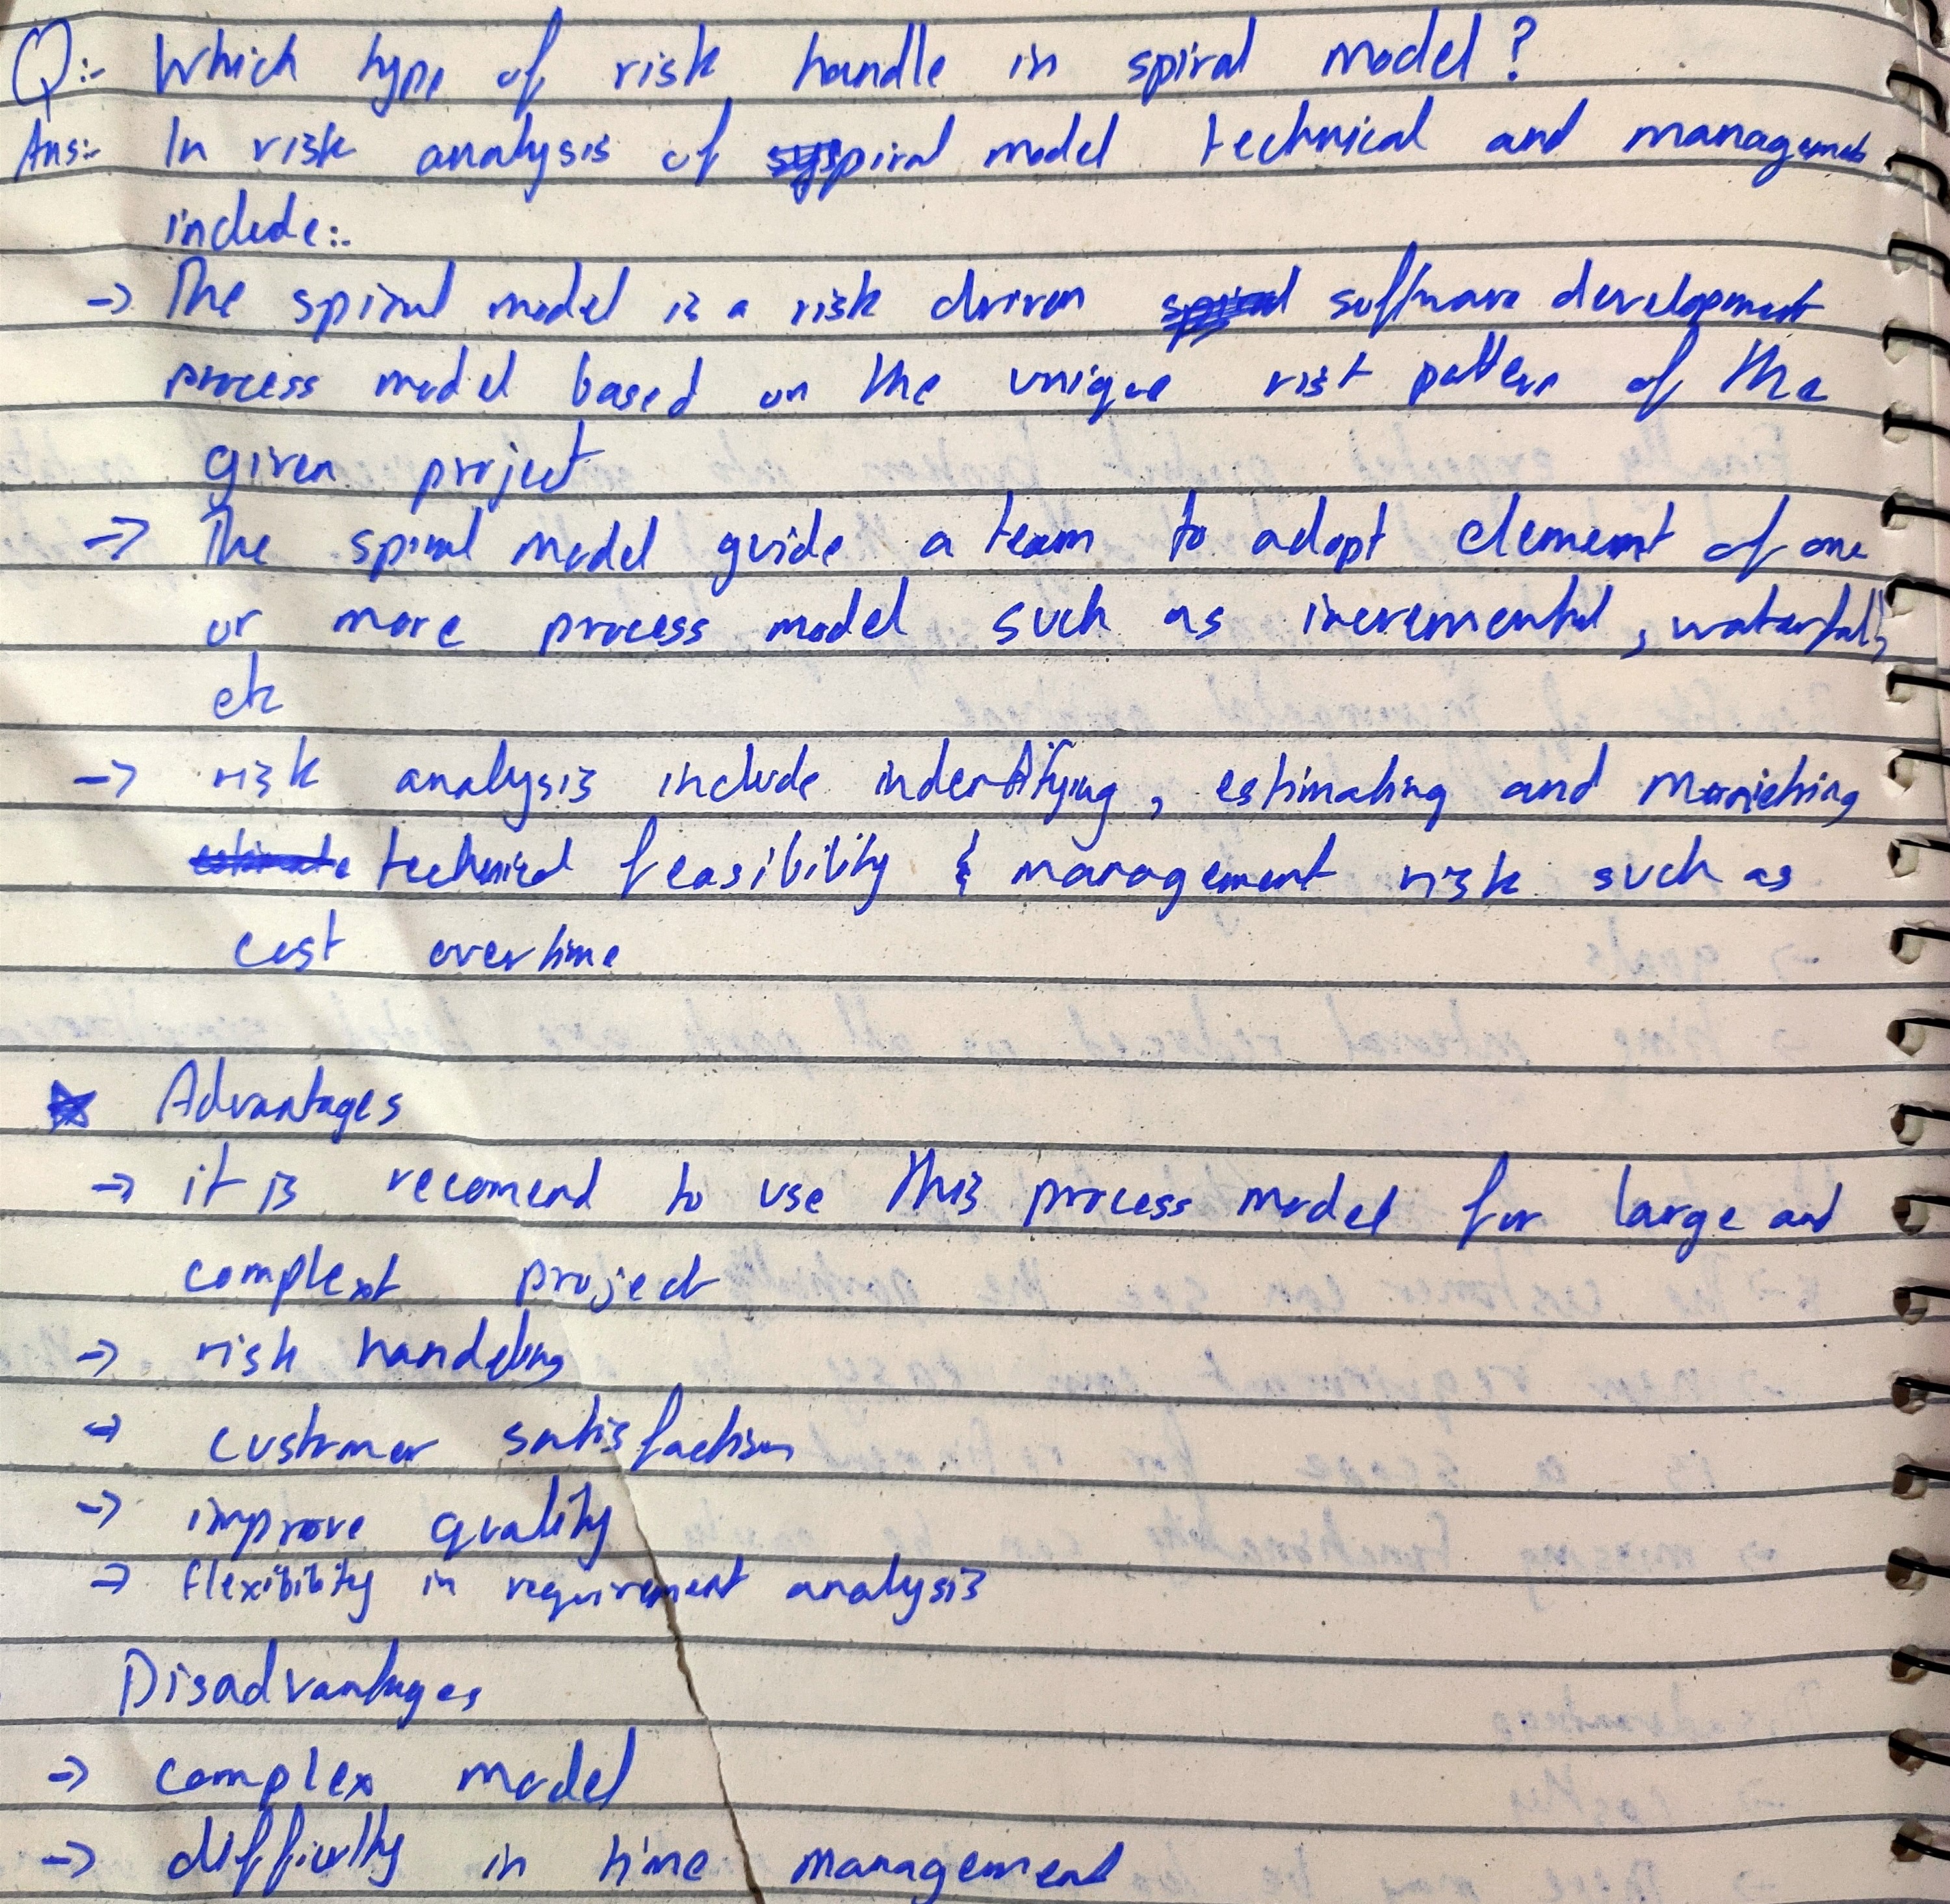 Q:- Which type of risk handle in spiral model?
Ans:- In risk analysis of spiral model technical and management
include:-
→ The spiral model is a risk driven software development
process model based on the unique risk pattern of the
given project
→ The spiral model guide a team to adopt element of one
or more process model such as incremental, waterfall,
etc
→ risk analysis include indentifying, estimating and
technical feasibility & management risk such as
cost overtime
Advantages
→ it is recomend to use this process model for large and
complext project
→ risk handeling
→ customer satisfaction
→ improve quality
→ flexibility in requirement analysis
Disadvantages
→ complex model
→ difficulty in time management